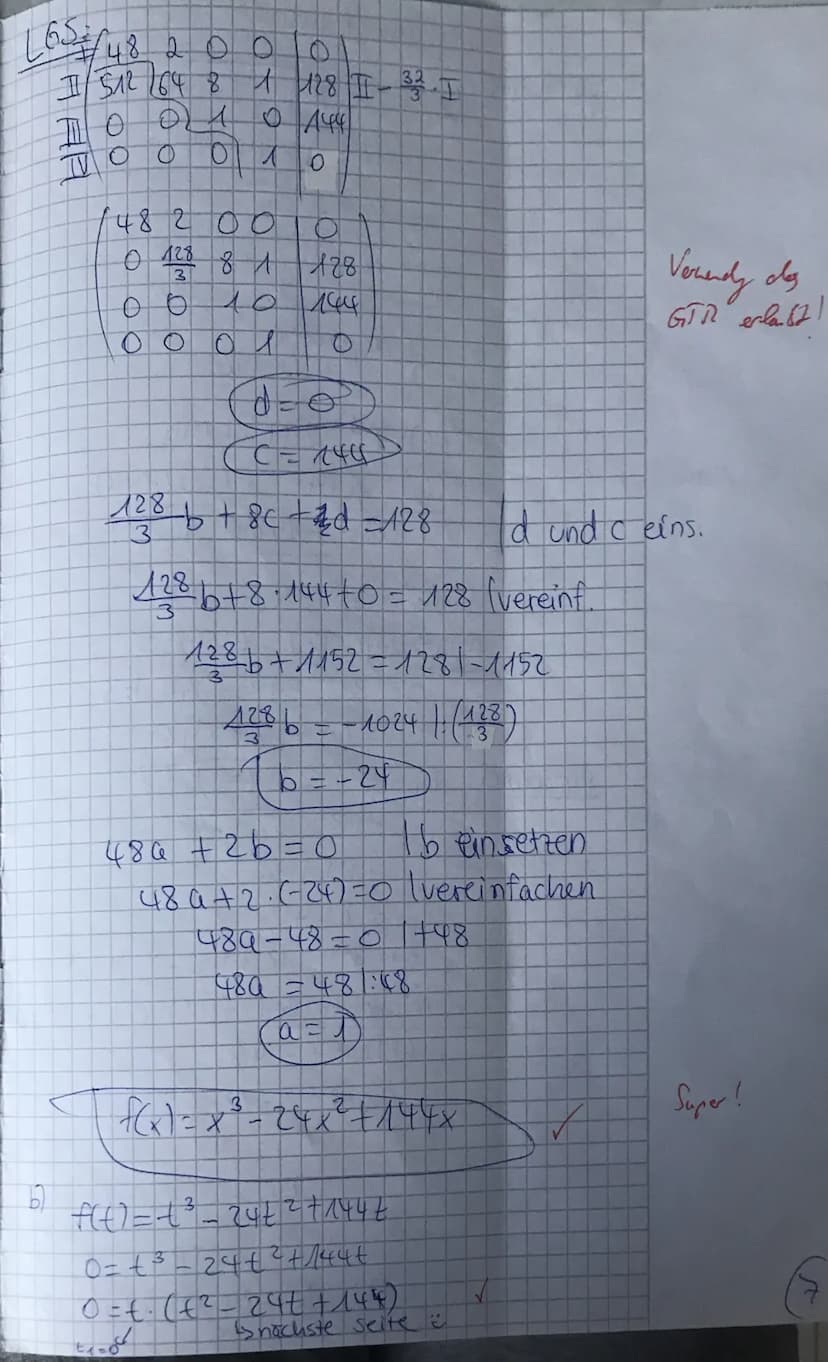 LGS:
I 48 2 0 0 | 0
II 512 64 8 1 | 128 | II - 32/3 · I
III 0 0 1 0 | 144
IV 0 0 0 1 | 0
48 2 0 0 | 0
0 128/3 8 1 | 128
0 0 1 0 | 144
0 0 0 1 | 0
GTR
d = 0
c = 144
128/3 b + 8c + d = 128 | d und c eins.
128/3 b + 8 · 144 + 0 = 128 | vereinf.
128/3 b + 1152 = 128 | -1152
128/3 b = -1024 | : (128/3)
b = -24
48a + 2b = 0 | b einsetzen
48a + 2 · (-24) = 0 | vereinfachen
48a - 48 = 0 | +48
48a = 48 | :48
a = 1
f(x) = x³ - 24x² + 144x ✓
Super!
b) f(t) = t³ - 24t² + 144t
0 = t³ - 24t² + 144t
0 = t · (t² - 24t + 144) ✓
↳ nächste seite :
t₁=0
7